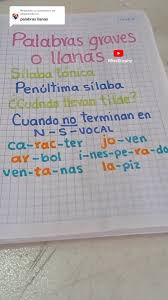 palabras llanas
Palabras graves
o llanas
Sílaba tónica
Penúltima sílaba
¿Cuándo llevan tilde?
Cuando no terminan en
N - S - VOCAL
ca-rac-ter jo-ven
ar-bol i-nes-pe-ra-do
ven-ta-nas la-piz